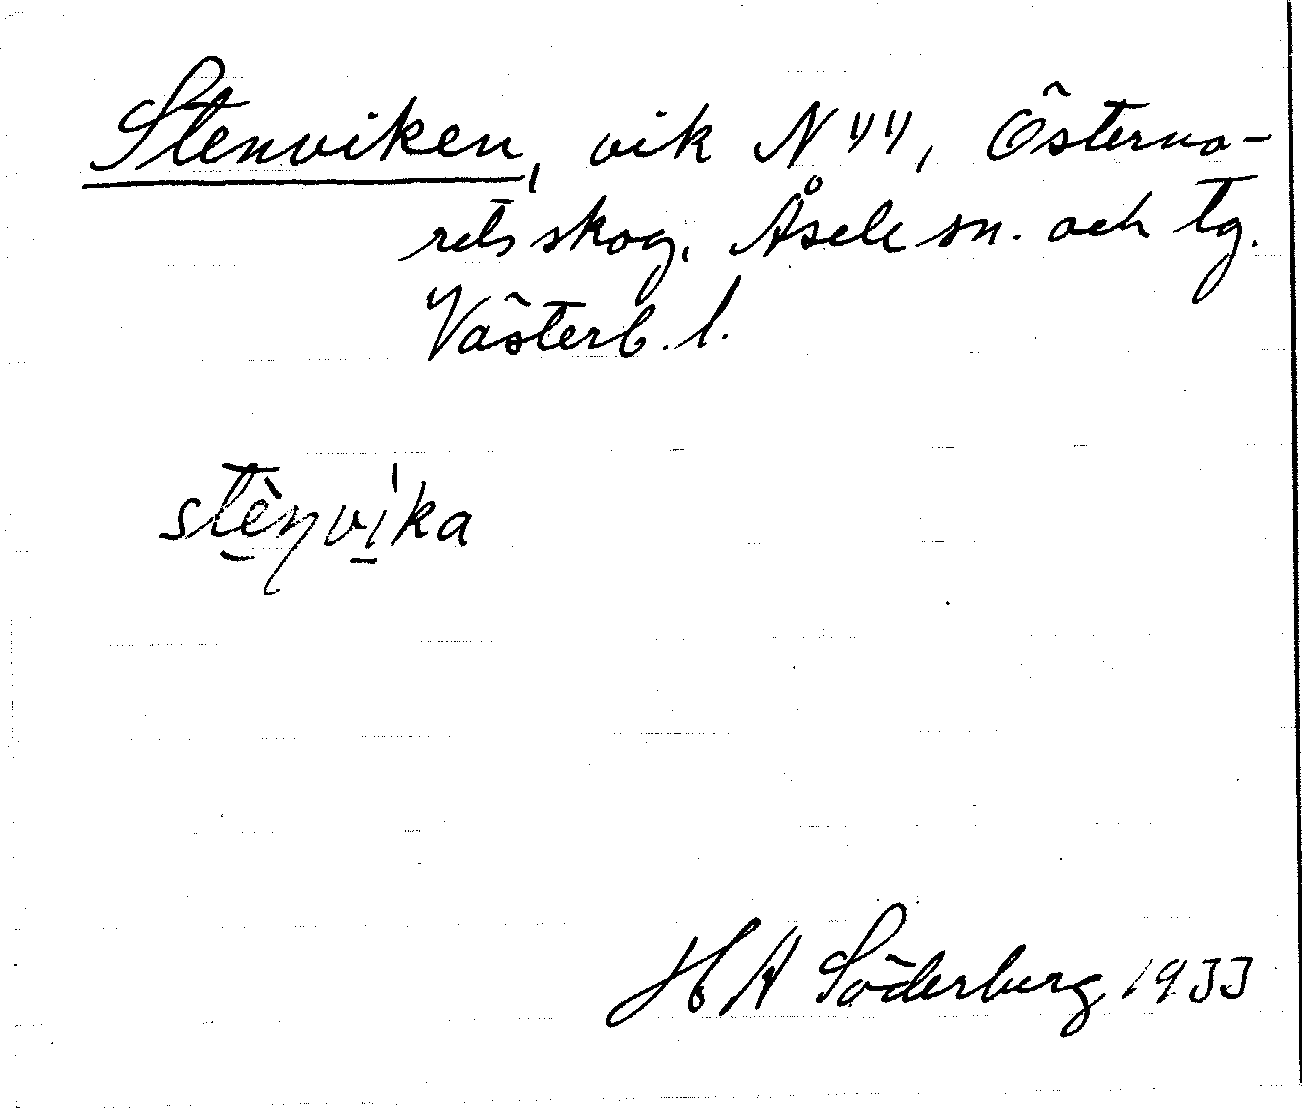 Stenviken, vik N 44, Österno-
rets skog, Åsele sn. och tg.
Västerb. l.
stènvika
H A Söderberg 1933